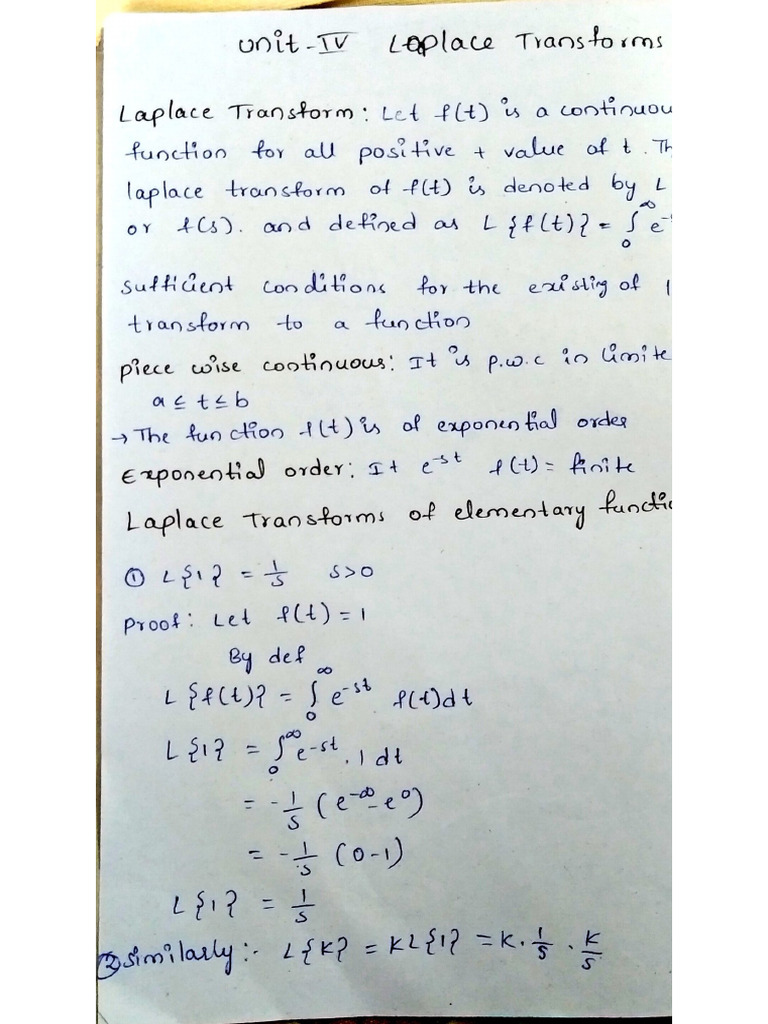 Unit-IV Laplace Transforms
Laplace Transform: Let f(t) is a continuou
function for all positive + value of t. Th
laplace transform of f(t) is denoted by L
or f(s). and defined as L{f(t)} = ∫₀^∞ e^-s
sufficient conditions for the existig of l
transform to a function
piece wise continuous: It is p.w.c in limite
a ≤ t ≤ b
→ The function f(t) is of exponential order
Exponential order: It e^-st f(t) = finite
Laplace Transforms of elementary functio
① L{1} = 1/s s>0
Proof: Let f(t) = 1
By def
L{f(t)} = ∫₀^∞ e^-st f(t)dt
L{1} = ∫₀^∞ e^-st . 1 dt
= -1/s (e^-∞ - e^0)
= -1/s (0-1)
L{1} = 1/s
② Similarly:- L{K} = KL{1} = K. 1/s . K/s